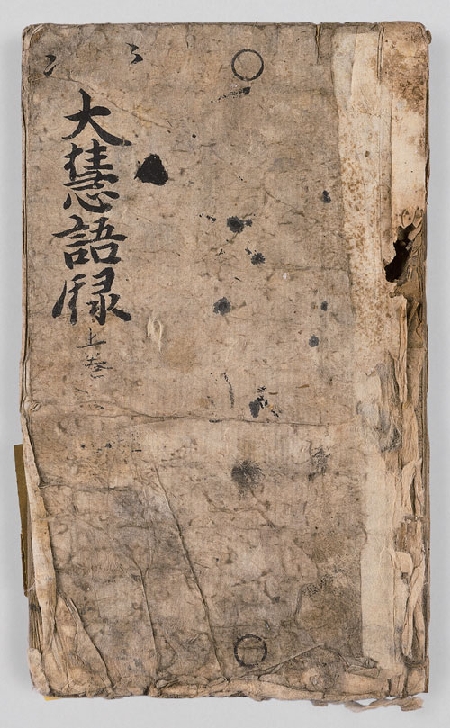 大慧語録
上卷